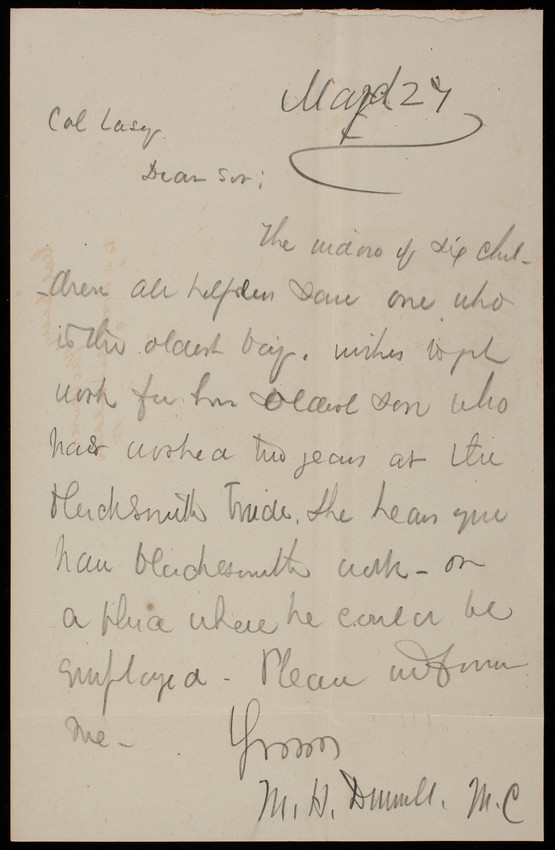 March 27
Col Casey
Dear Sir;
The widow of six chil-
-dren all helpless save one who
is the oldest boy. wishes to get
work for her oldest son who
has worked two years at the
blacksmith trade. She hears you
have blacksmith work - or
a place where he could be
employed - Please inform
me -
Yours
M. H. Dunnell. M. C